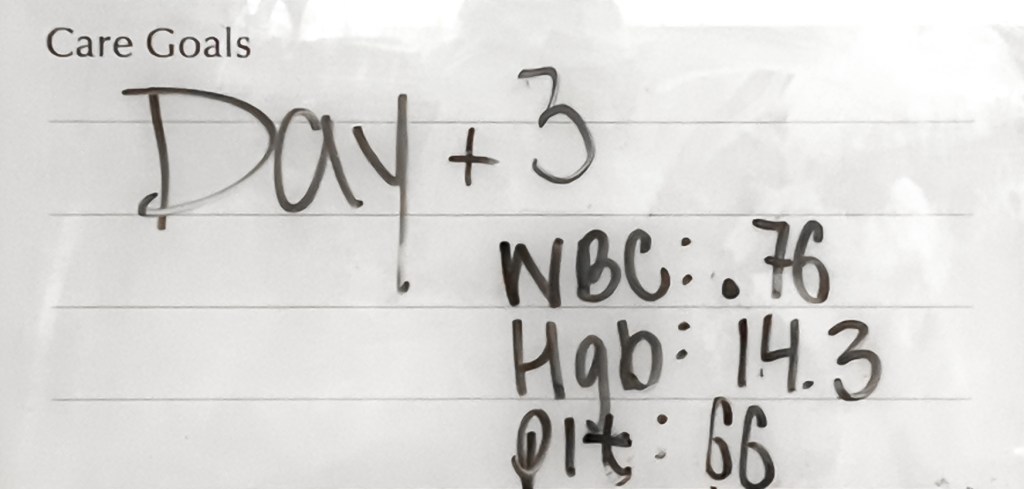 Care Goals
Day +3
WBC: .76
Hgb: 14.3
Plt: 66